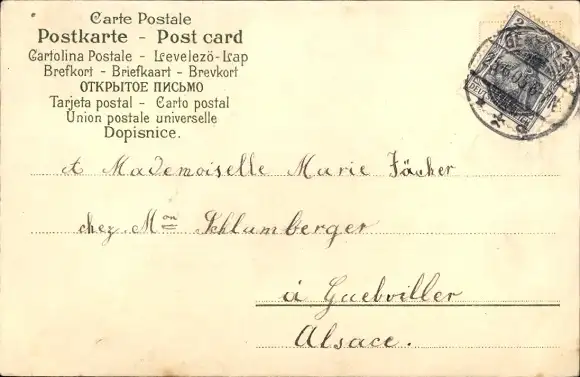 Carte Postale
Postkarte - Post card
Cartolina Postale - Levelező-Lap
Brefkort - Briefkaart - Brevkort
ОТКРЫТОЕ ПИСЬМО
Tarjeta postal - Carto postal
Union postale universelle
Dopisnice.
2 2
A Mademoiselle Marie Fächer
chez Mon Schlumberger
à Guebviller
Alsace.